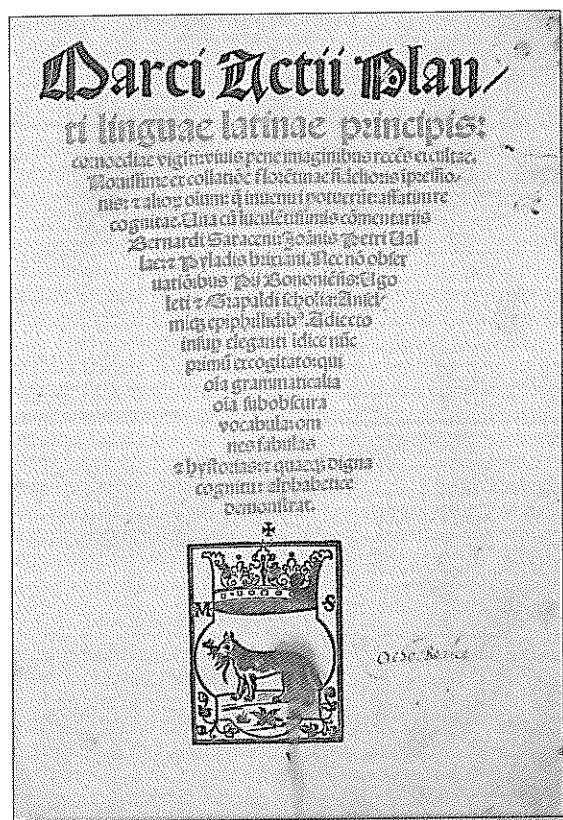 Marci Actii Plau/
ti linguae latinae principis:
comoediae vigīti: viuis pene imaginibus recēs excultae.
Nouissime et collatiōe florētinae fidelioris īpressio-
nis: ⁊ alioꝝ oīum: q̄ inueniri potuerūt: assatim re
cognitae. Una cū luculētissimis cōmentariis
Bernardi Saraceni: Joānis Petri Ual
lae: ⁊ Pyladis buxiani. Nec nō obser
uatiōibus Pii Bononiēsis: Ugo
leti ⁊ Grapaldi scholia: Ansel-
miqȝ epiphillidibꝰ. Adiecto
insuꝑ eleganti īdice nūc
primū excogitato: qui
oīa grammaticalia
oīa subobscura
vocabula: om
nes fabulas
⁊ hystorias: ⁊ quaeqȝ digna
cognitu: alphabetice
demonstrat.
M S